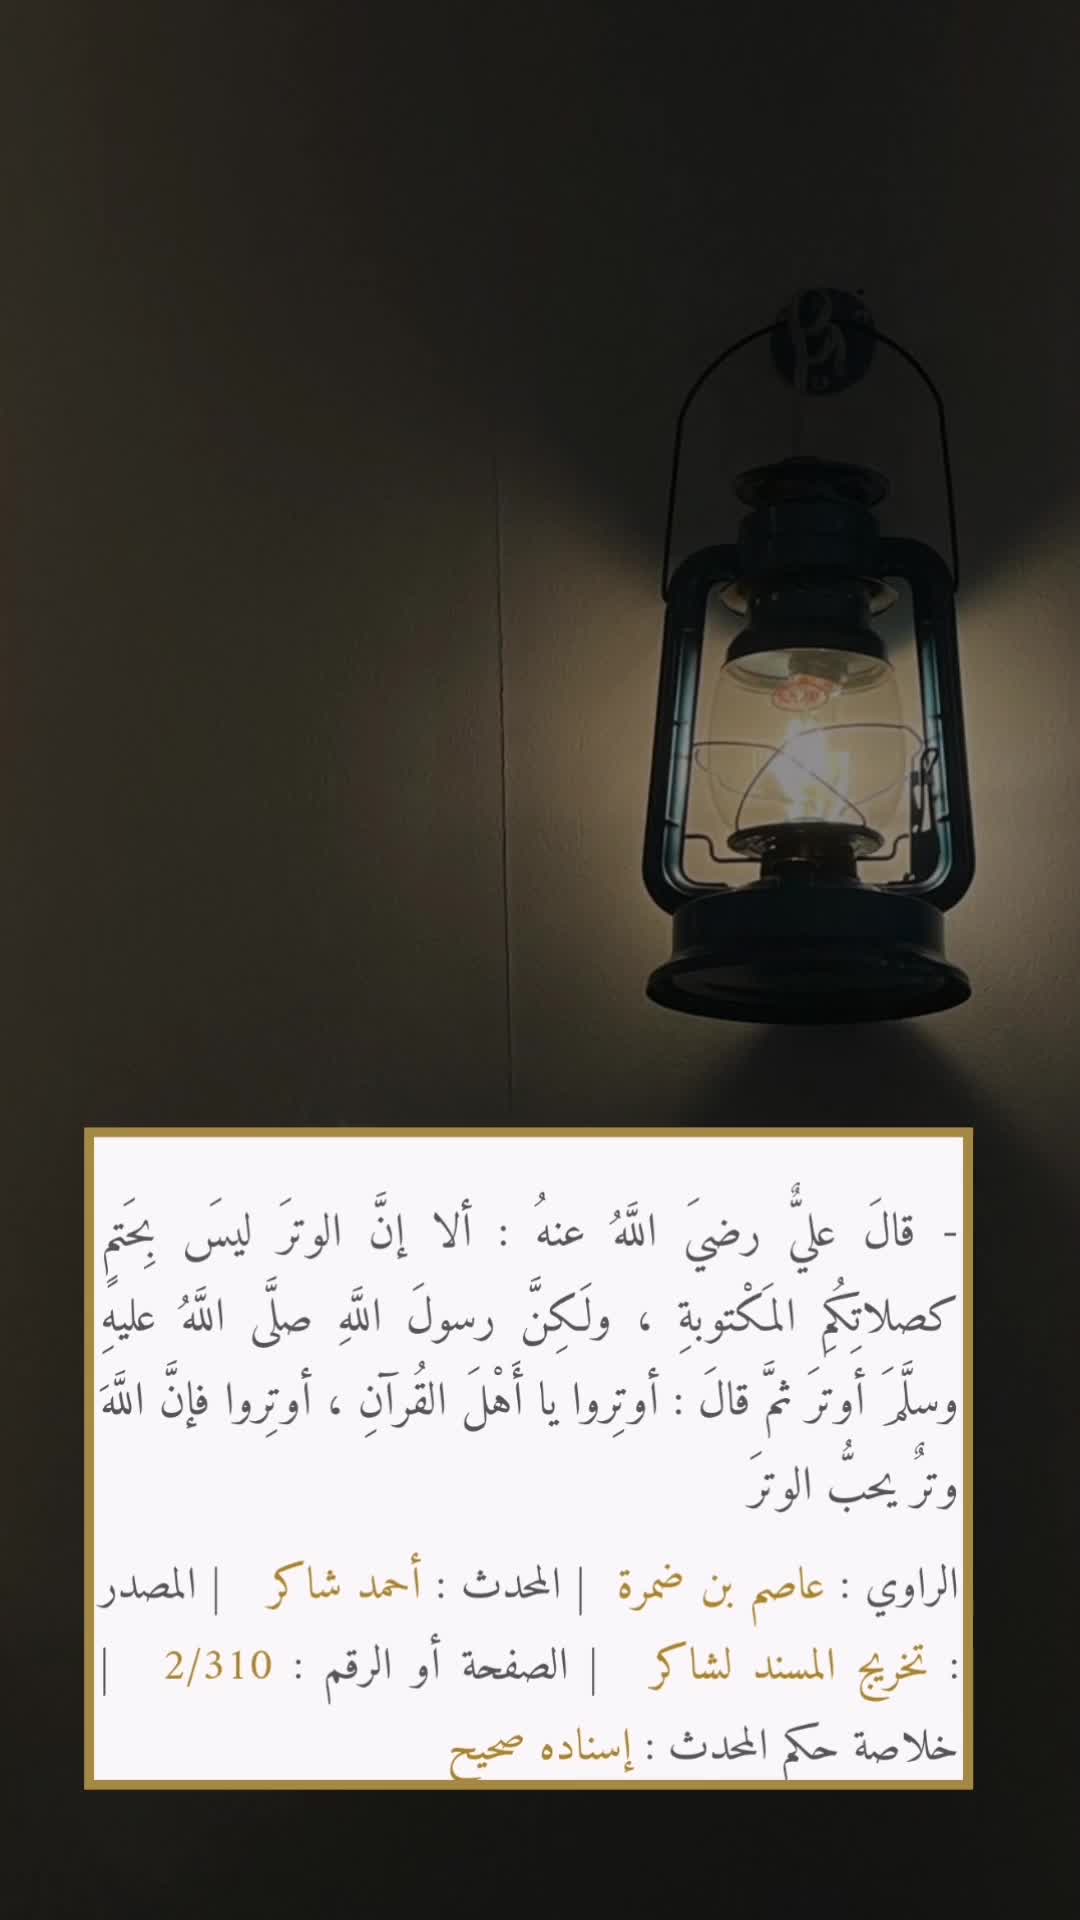 - قالَ عليٌّ رضيَ اللَّهُ عنهُ : ألا إنَّ الوترَ ليسَ بِحَتمٍ
كصلاتِكُمِ المَكْتوبةِ ، ولَكِنَّ رسولَ اللَّهِ صلَّى اللَّهُ عليهِ
وسلَّمَ أوترَ ثمَّ قالَ : أوتِروا يا أَهْلَ القُرآنِ ، أوتِروا فإنَّ اللَّهَ
وترٌ يحبُّ الوترَ
الراوي : عاصم بن ضمرة | المحدث : أحمد شاكر | المصدر
: تخريج المسند لشاكر | الصفحة أو الرقم : 2/310 |
خلاصة حكم المحدث : إسناده صحيح